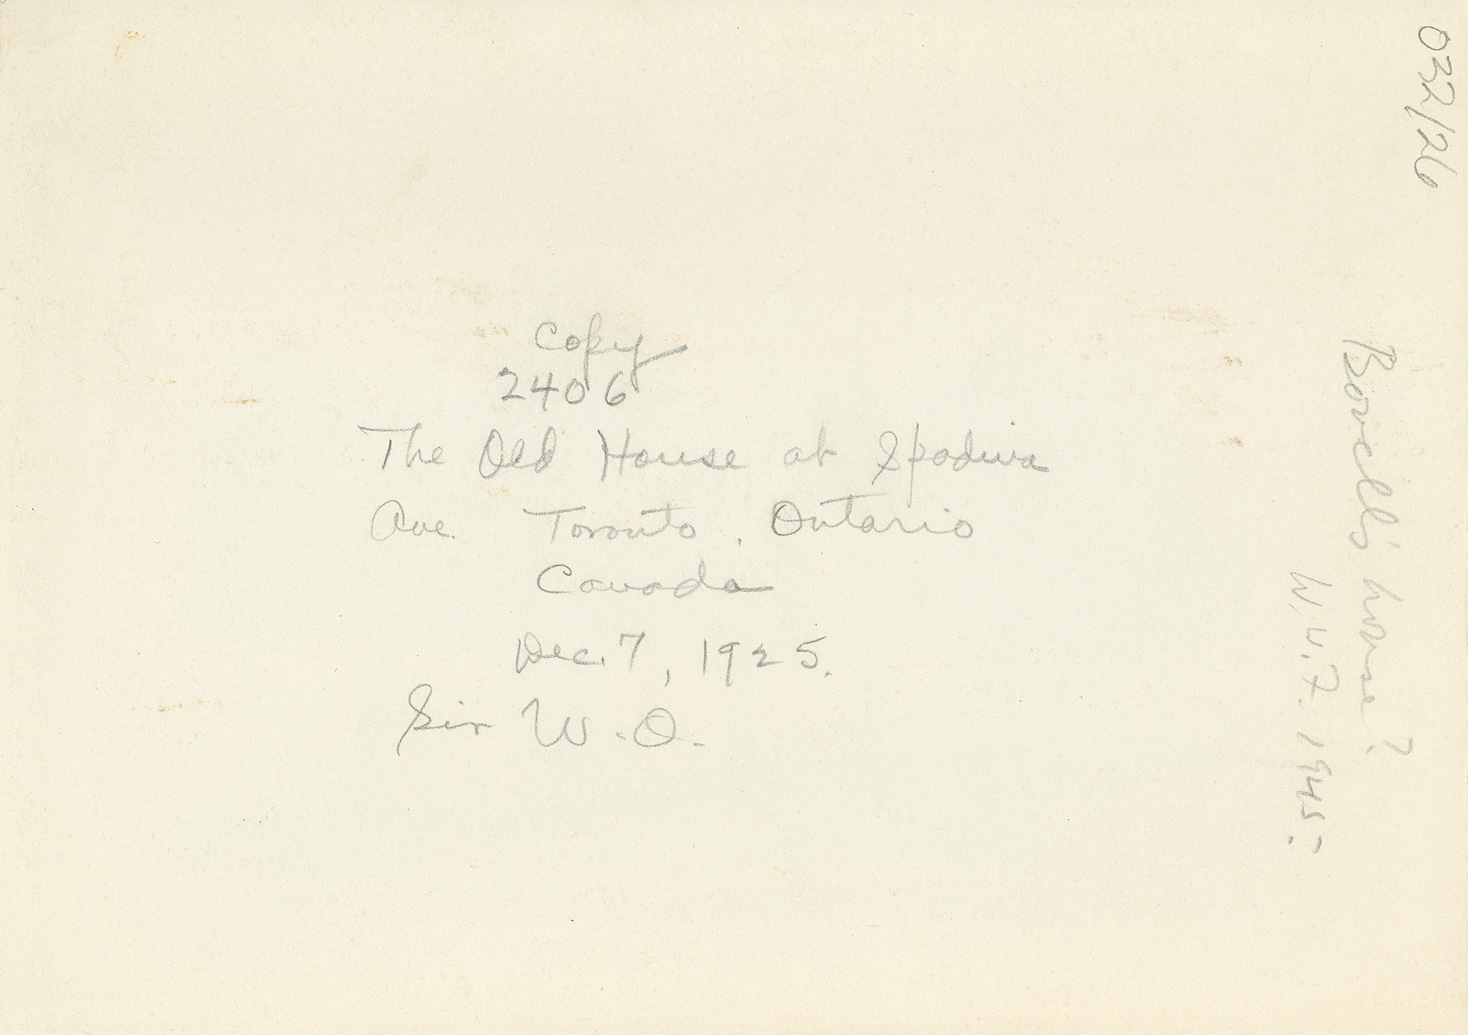 032/26
Copy
2406
The Old House at Spadina
Ave. Toronto, Ontario
Canada
Dec. 7, 1925.
Sir W.O.
Bovell's house?
W.W.F. 1945?